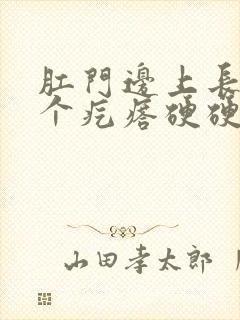 肛門邊上長
个疙瘩硬硬
山田孝太郎